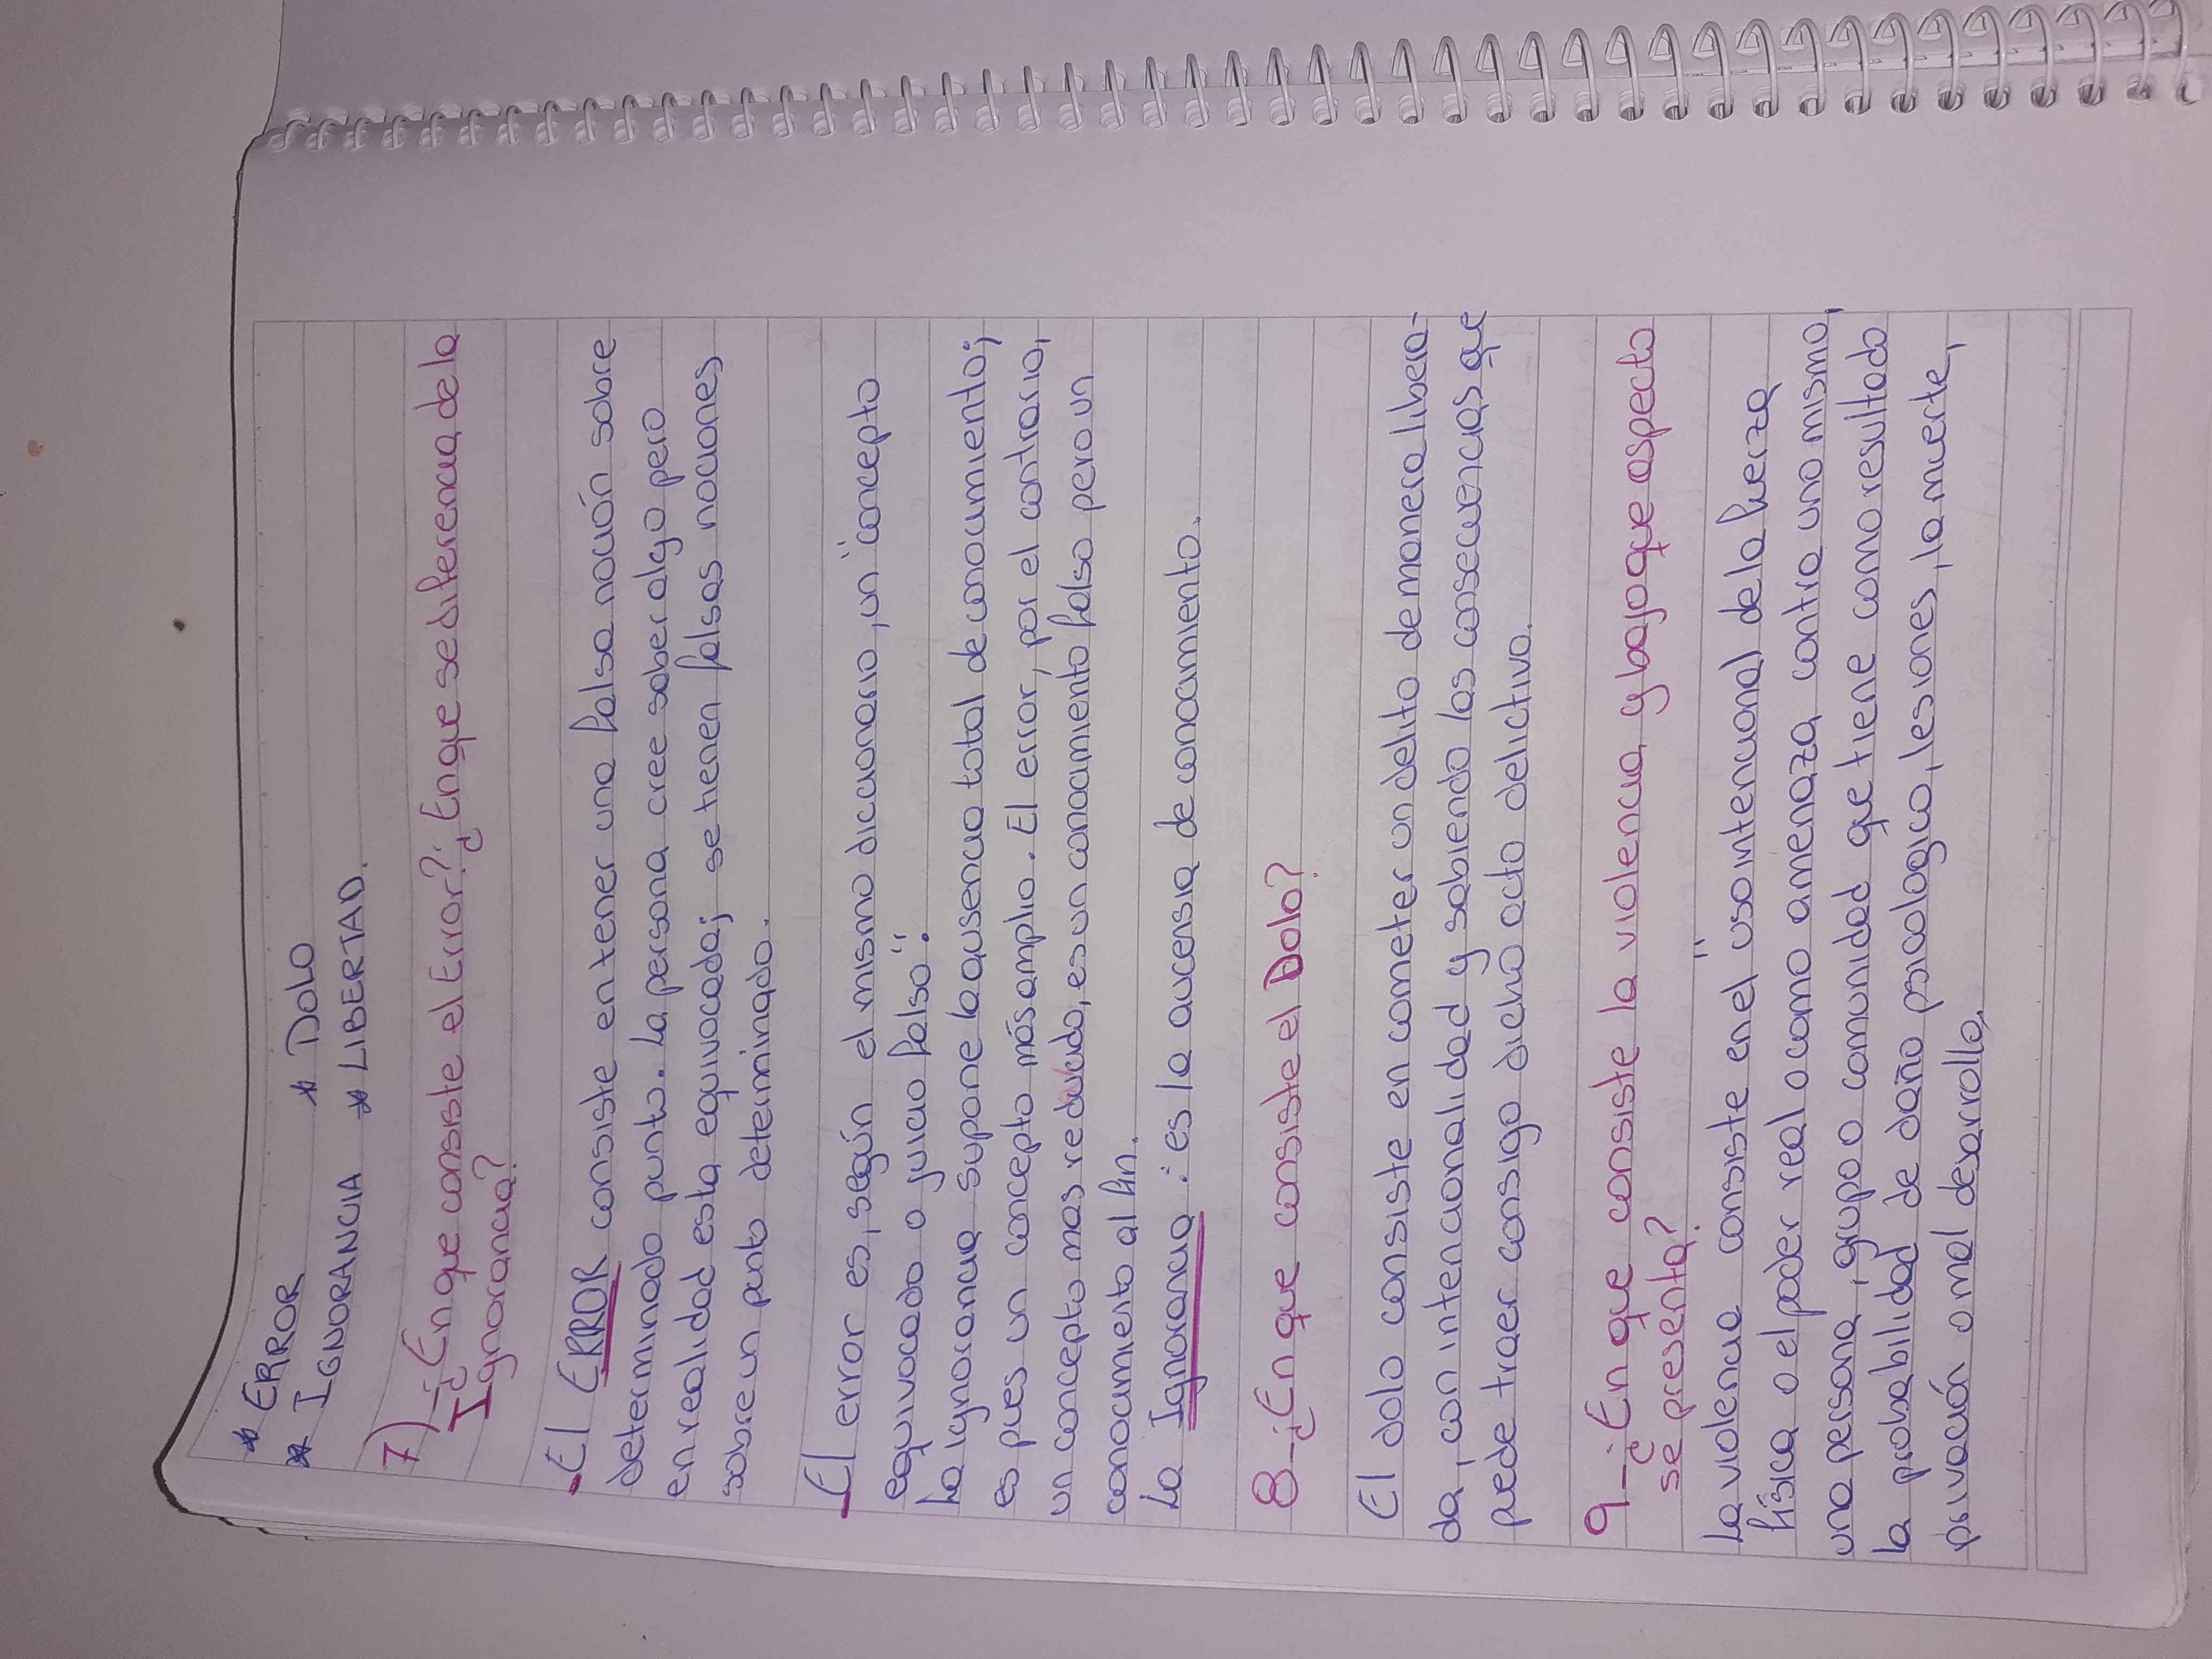 * ERROR * DOLO
* IGNORANCIA * LIBERTAD.
7)-¿En que consiste el Error?¿En que se diferencia de la
Ignorancia?
-El ERROR consiste en tener una falsa noción sobre
determinado punto. La persona cree saber algo pero
en realidad esta equivocada; se tienen falsas nociones
sobre un punto determinado.
-El error es, según el mismo diccionario, un "concepto
equivocado o juicio falso".
La ignorancia supone la ausencia total de conocimiento;
es pues un concepto más amplio. El error, por el contrario,
un concepto mas reducido, es un conocimiento falso pero un
conocimiento al fin.
La Ignorancia: es la aucensia de conocimiento.
8-¿En que consiste el Dolo?
El dolo consiste en cometer un delito de manera libera-
da, con intencionalidad y sabiendo las consecuencias que
puede traer consigo dicho acto delictivo.
9-¿En que consiste la violencia, y bajo que aspecto
se presenta?
La violencia consiste en el "uso intencional de la fuerza
física o el poder real o como amenaza contra uno mismo,
una persona, grupo o comunidad que tiene como resultado
la probabilidad de daño psicologico, lesiones, la muerte,
privación o mal desarrollo,